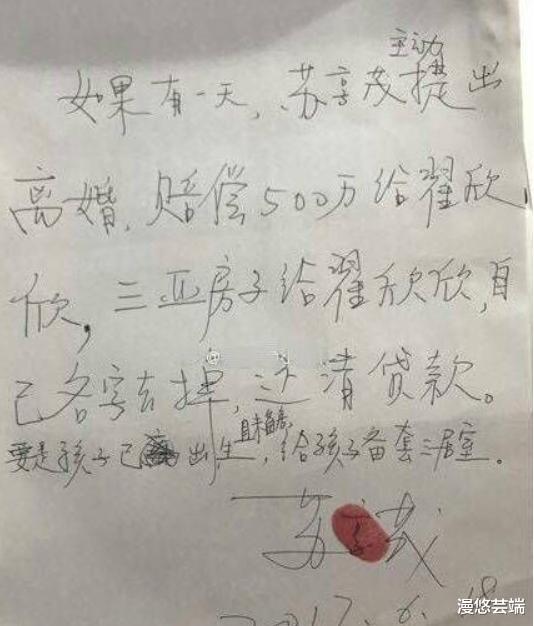 主动
如果有一天,苏享茂提出
离婚,赔偿500万给翟欣
欣,三亚房子给翟欣欣,自
己名字去掉,还清贷款。
且未备房
要是孩子已出生,给孩子备套三居室。
苏享茂
2017.6.18
漫悠芸端